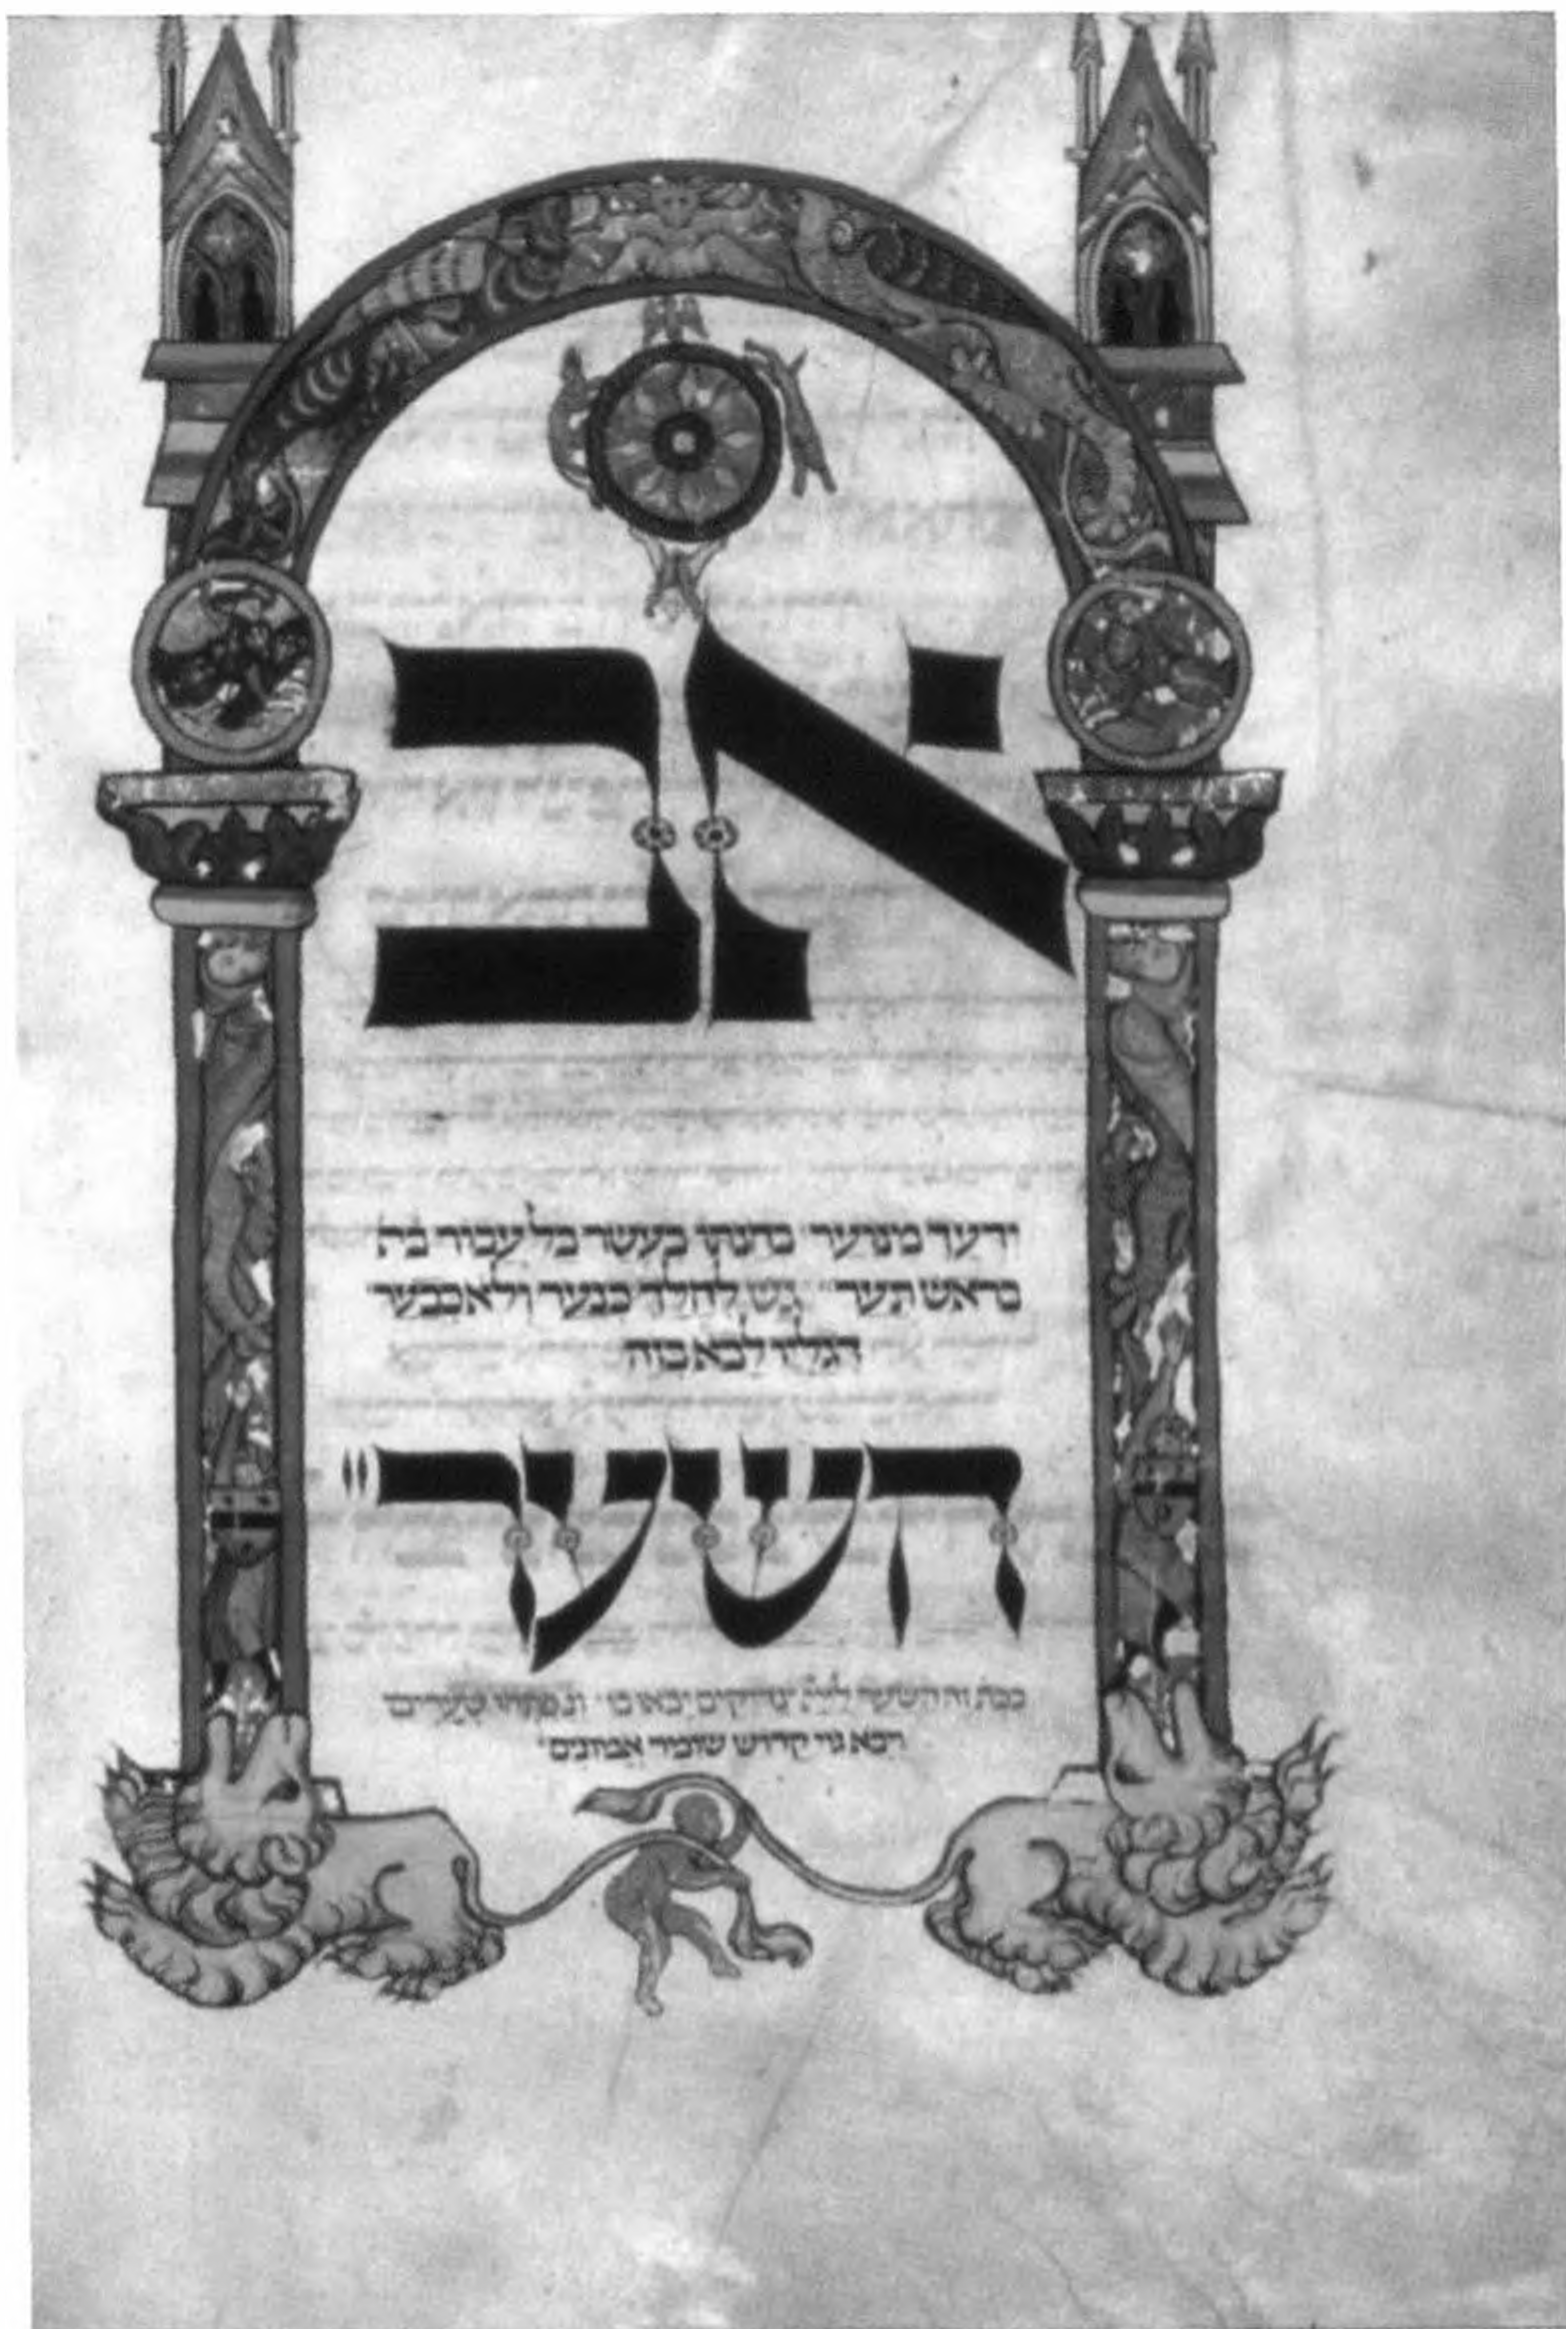 אב
ידעך מנוער בחנתו בעשר בל עבור בת
בראש תער גש לחלך כנער ולא כבשר
הגליו לבא בזה
השער
ככת זה השער ליית צדיקים יבאו בו ונפתחו שערים
ויבא גוי קדוש שומר אמונים